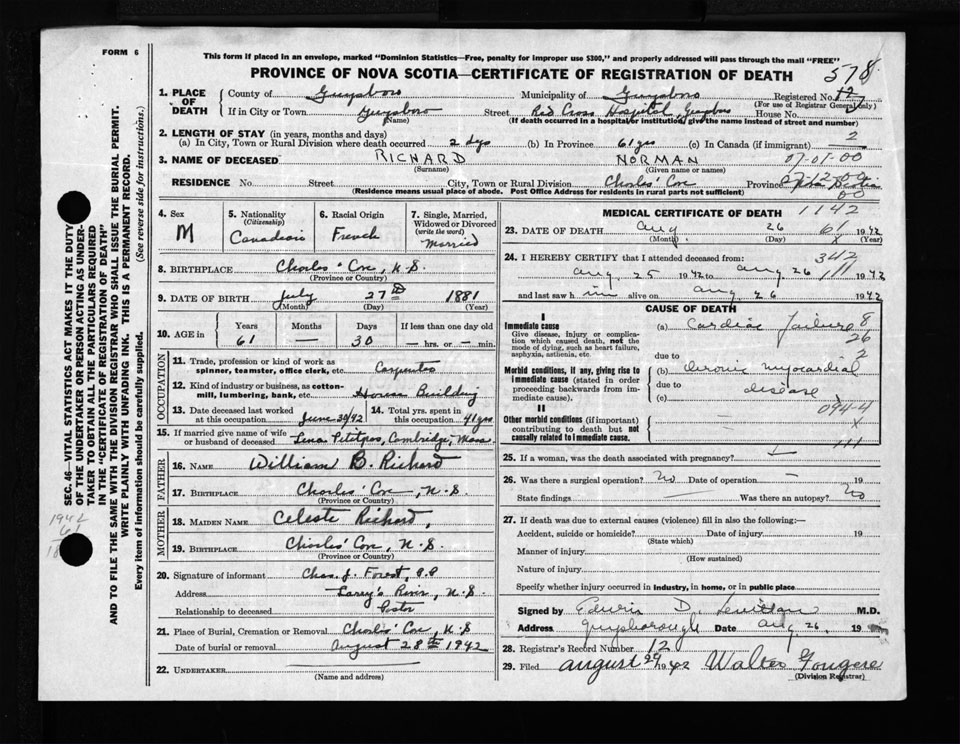 FORM 6
This form if placed in an envelope, marked "Dominion Statistics—Free, penalty for improper use $300," and properly addressed will pass through the mail "FREE"
PROVINCE OF NOVA SCOTIA—CERTIFICATE OF REGISTRATION OF DEATH
578
1. PLACE OF DEATH
County of Guysboro Municipality of Guysboro Registered No. 12
(For use of Registrar General only)
If in City or Town Guysboro Street Red Cross Hospital, Guysboro House No.
(Name) (If death occurred in a hospital or institution, give the name instead of street and number)
2. LENGTH OF STAY (in years, months and days)
(a) In City, Town or Rural Division where death occurred 2 dys (b) In Province 61 yrs (c) In Canada (if immigrant)
2
3. NAME OF DECEASED RICHARD NORMAN 07-01-00
(Surname) (Given name or names)
RESIDENCE No. Street City, Town or Rural Division Charlos' Cove Province Nova Scotia
(Residence means usual place of abode. Post Office Address for residents in rural parts not sufficient)
4. Sex M
5. Nationality (Citizenship) Canadian
6. Racial Origin French
7. Single, Married, Widowed or Divorced (write the word) Married
8. BIRTHPLACE Charlos' Cove, N.S.
(Province or Country)
9. DATE OF BIRTH July 27th 1881
(Month) (Day) (Year)
10. AGE in Years 61 Months — Days 30 If less than one day old — hrs. or — min.
OCCUPATION
11. Trade, profession or kind of work as spinner, teamster, office clerk, etc. Carpenter
12. Kind of industry or business, as cotton-mill, lumbering, bank, etc. House Building
13. Date deceased last worked at this occupation June 30/42
14. Total yrs. spent in this occupation 41 yrs
15. If married give name of wife or husband of deceased Lena Petitpas, Cambridge, Mass.
FATHER
16. NAME William B. Richard
17. BIRTHPLACE Charlos' Cove, N.S.
(Province or Country)
MOTHER
18. MAIDEN NAME Celeste Richard,
19. BIRTHPLACE Charlos' Cove, N.S.
(Province or Country)
20. Signature of informant Chas. J. Forest, P.P.
Address Larry's River, N.S.
Relationship to deceased Pastor
21. Place of Burial, Cremation or Removal Charlos' Cove, N.S
Date of burial or removal August 28th 1942
22. UNDERTAKER
(Name and address)
MEDICAL CERTIFICATE OF DEATH 1142
23. DATE OF DEATH Aug 26 1942
61
(Month) (Day) (Year)
24. I HEREBY CERTIFY that I attended deceased from: 342
Aug 25 1942 to Aug 26 1942
and last saw him alive on Aug 26 1942
CAUSE OF DEATH
I
Immediate cause
Give disease, injury or complication which caused death, not the mode of dying, such as heart failure, asphyxia, asthenia, etc.
(a) Cardiac failure
8
26
2
due to
Morbid conditions, if any, giving rise to immediate cause (stated in order proceeding backwards from immediate cause).
(b) chronic myocardial
due to disease
(c)
II
094-4
Other morbid conditions (if important) contributing to death but not causally related to immediate cause.
x
111
25. If a woman, was the death associated with pregnancy?
26. Was there a surgical operation? No Date of operation — 19
State findings Was there an autopsy? No
27. If death was due to external causes (violence) fill in also the following:—
Accident, suicide or homicide? Date of injury 19
(State which)
Manner of injury
(How sustained)
Nature of injury
Specify whether injury occurred in industry, in home, or in public place
Signed by Edwin D. M.D.
Address Guysborough Date Aug 26, 19
28. Registrar's Record Number 12
29. Filed August 29 1942 Walter Fougere
(Division Registrar)
SEC. 46—VITAL STATISTICS ACT MAKES IT THE DUTY OF THE UNDERTAKER OR PERSON ACTING AS UNDERTAKER TO OBTAIN ALL THE PARTICULARS REQUIRED IN THE "CERTIFICATE OF REGISTRATION OF DEATH"
AND TO FILE THE SAME WITH THE DIVISION REGISTRAR WHO SHALL ISSUE THE BURIAL PERMIT.
WRITE PLAINLY WITH UNFADING INK. THIS IS A PERMANENT RECORD.
Every item of information should be carefully supplied. (See reverse side for instructions.)
1942
61